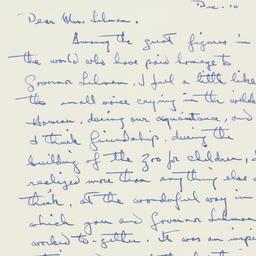 Dec. 10
Dear Mrs. Lehman.
Among the great figures in
the world who have paid homage to
Governor Lehman, I feel a little like
the small voice crying in the
However, during our acquaintance, and
I think friendship, during the
building of the Zoo for children, I
realized more than anything else
think, at the wonderful way in
which you and Governor Lehman
worked to-gether. It was an